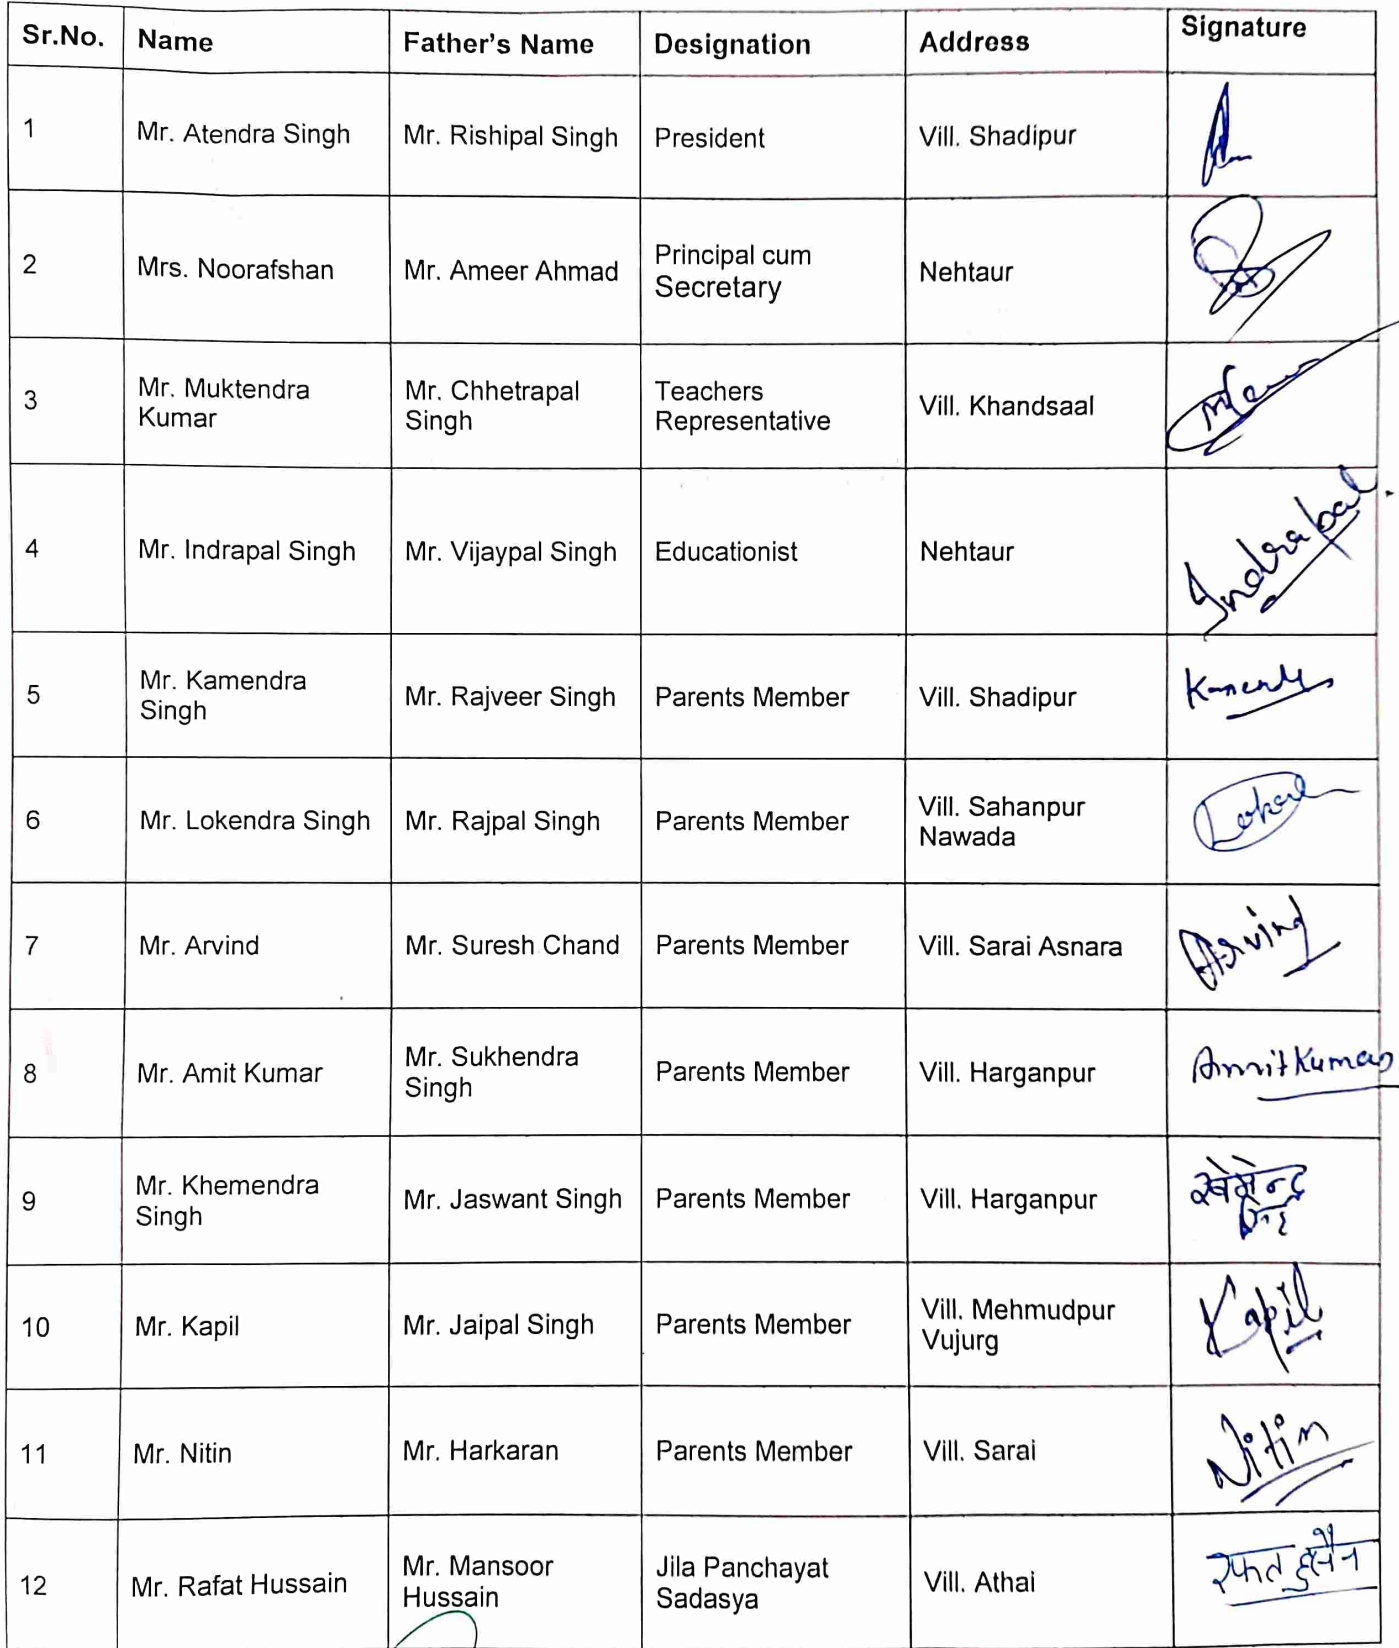 Sr.No. Name Father's Name Designation Address Signature
1 Mr. Atendra Singh Mr. Rishipal Singh President Vill. Shadipur
2 Mrs. Noorafshan Mr. Ameer Ahmad Principal cum Secretary Nehtaur
3 Mr. Muktendra Kumar Mr. Chhetrapal Singh Teachers Representative Vill. Khandsaal
4 Mr. Indrapal Singh Mr. Vijaypal Singh Educationist Nehtaur Indrapal
5 Mr. Kamendra Singh Mr. Rajveer Singh Parents Member Vill. Shadipur
6 Mr. Lokendra Singh Mr. Rajpal Singh Parents Member Vill. Sahanpur Nawada
7 Mr. Arvind Mr. Suresh Chand Parents Member Vill. Sarai Asnara Arvind
8 Mr. Amit Kumar Mr. Sukhendra Singh Parents Member Vill. Harganpur Amit Kumar
9 Mr. Khemendra Singh Mr. Jaswant Singh Parents Member Vill. Harganpur खेमेन्द्र सिंह
10 Mr. Kapil Mr. Jaipal Singh Parents Member Vill. Mehmudpur Vujurg Kapil
11 Mr. Nitin Mr. Harkaran Parents Member Vill. Sarai Nitin
12 Mr. Rafat Hussain Mr. Mansoor Hussain Jila Panchayat Sadasya Vill. Athai रफत हुसैन